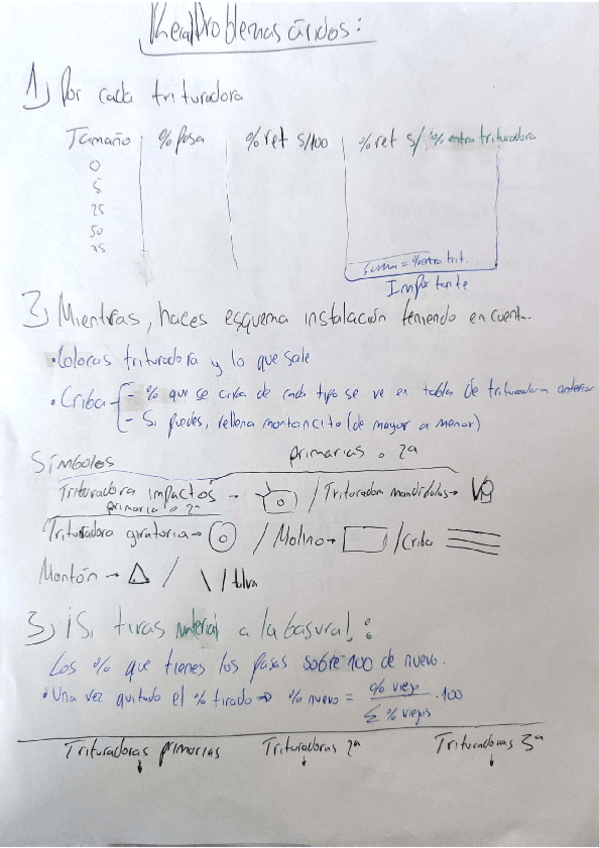 Problemas áridos:
1) Por cada trituradora
Tamaño % Pasa % ret s/100 % ret s/ % entra trituradora
0
5
25
50
75
Suma = % entra trit.
Importante
2) Mientras, haces esquema instalación teniendo en cuenta..
• Colocas trituradora y lo que sale
• Criba - % que se criba de cada tipo se ve en tabla de trituradora anterior
- Si puedes, rellena montoncito (de mayor a menor)
Símbolos primarias o 2ª
Trituradora impactos → / Trituradora mandíbulas →
primaria o 2ª
Trituradora giratoria → / Molino → / Criba
Montón → / \ / tolva
3) ¡Si tiras material a la basura!:
Los % que tienes los pasas sobre 100 de nuevo.
• Una vez quitado el % tirado → % nuevo = % viejo / Σ % viejos · 100
Trituradoras primarias Trituradoras 2ª Trituradoras 3ª